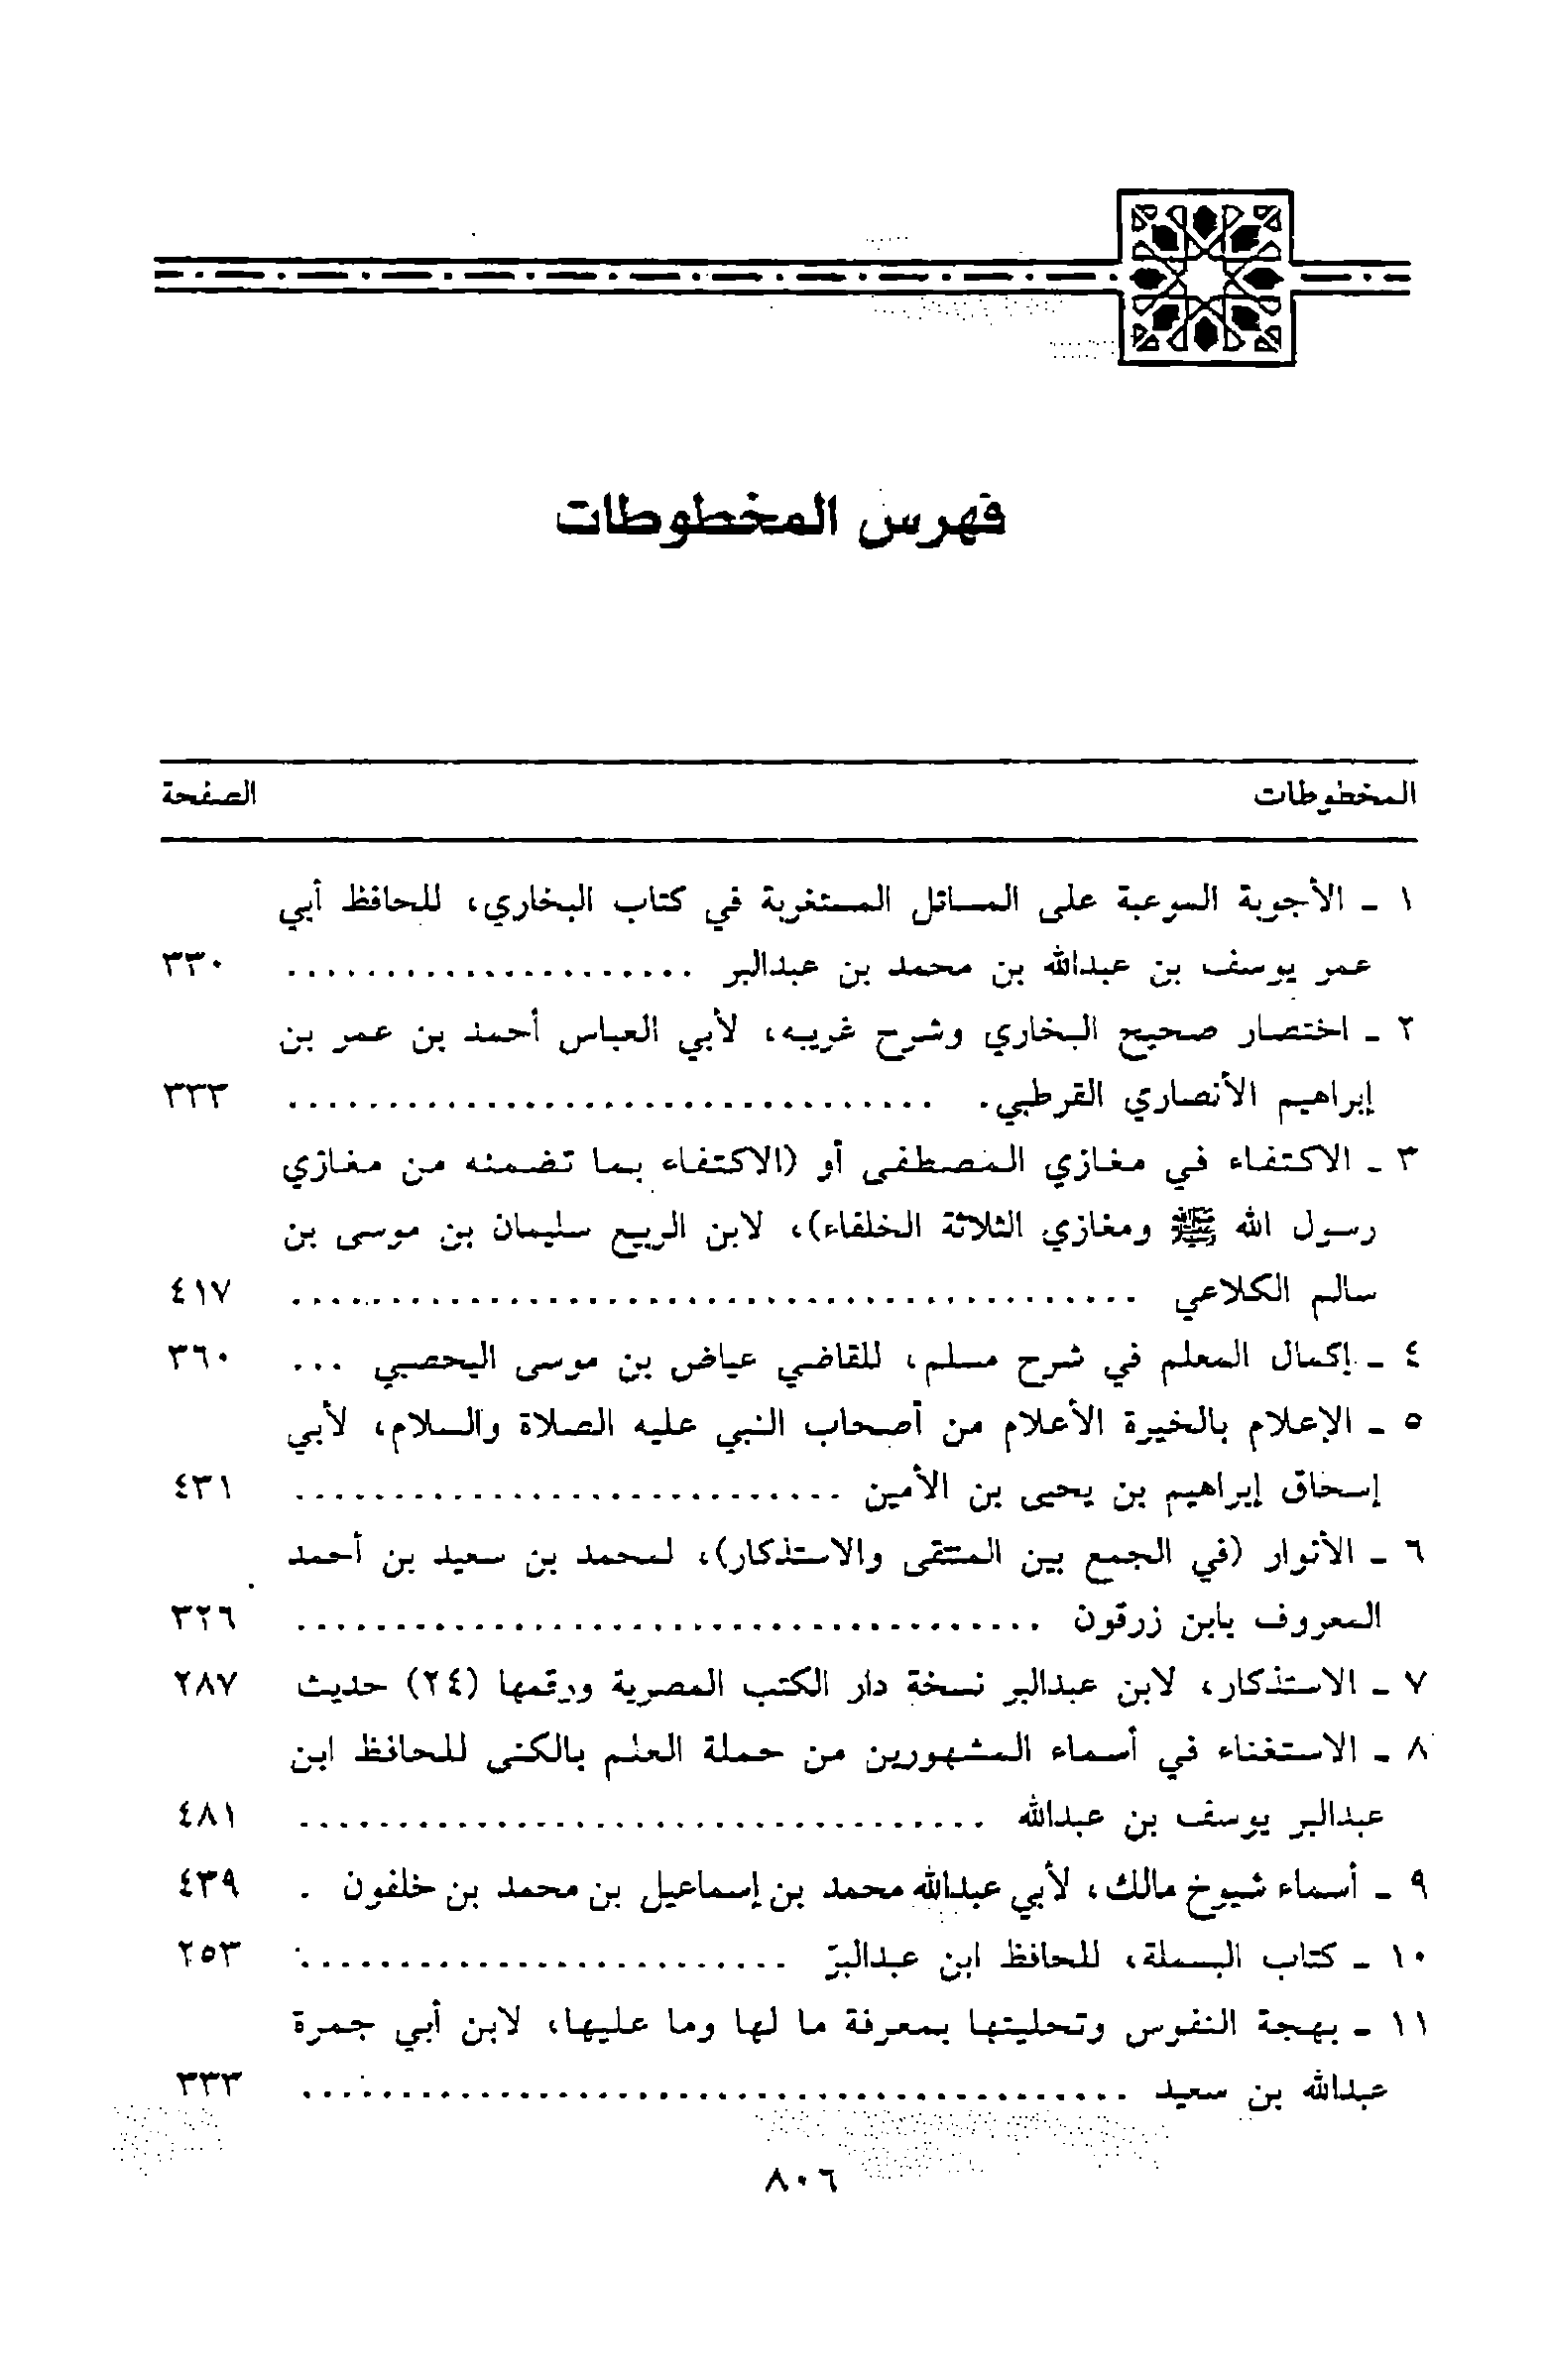 فهرس المخطوطات
المخطوطات الصفحة
١ - الأجوبة الموعبة على المسائل المستغربة في كتاب البخاري، للحافظ أبي
عمر يوسف بن عبدالله بن محمد بن عبدالبر ..................... ٣٣٠
٢ - اختصار صحيح البخاري وشرح غريبه، لأبي العباس أحمد بن عمر بن
إبراهيم الأنصاري القرطبي. ................................. ٣٣٣
٣ - الاكتفاء في مغازي المصطفى أو (الاكتفاء بما تضمنه من مغازي
رسول الله ﷺ ومغازي الثلاثة الخلفاء)، لابن الربيع سليمان بن موسى بن
سالم الكلاعي ........................................... ٤١٧
٤ - إكمال المعلم في شرح مسلم، للقاضي عياض بن موسى اليحصبي ... ٣٦٠
٥ - الإعلام بالخيرة الأعلام من أصحاب النبي عليه الصلاة والسلام، لأبي
إسحاق إبراهيم بن يحيى بن الأمين ............................ ٤٣١
٦ - الأنوار (في الجمع بين المنتقى والاستذكار)، لمحمد بن سعيد بن أحمد
المعروف بابن زرقون ...................................... ٣٢٦
٧ - الاستذكار، لابن عبدالبر نسخة دار الكتب المصرية ورقمها (٢٤) حديث ٢٨٧
٨ - الاستغناء في أسماء المشهورين من حملة العلم بالكنى للحافظ ابن
عبدالبر يوسف بن عبدالله ................................... ٤٨١
٩ - أسماء شيوخ مالك، لأبي عبدالله محمد بن إسماعيل بن محمد بن خلفون . ٤٣٩
١٠ - كتاب البسملة، للحافظ ابن عبدالبرّ ......................... ٢٥٣
١١ - بهجة النفوس وتحليتها بمعرفة ما لها وما عليها، لابن أبي جمرة
عبدالله بن سعيد .......................................... ٣٣٣
٨٠٦